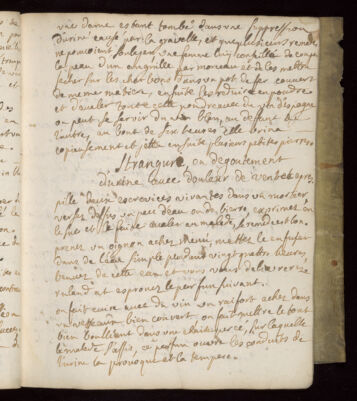 une dame estant tombé dans une suppression
d'urine causé par la gravelle, et que plusieurs remedes
ne pouvoient soulager une femme luy conseilla de couper
la peau d'un anguille par morceau et de les mettre
sur les charbons dans un pot de fer couvert
de meme matiere, en suite les reduire en poudre
et d'avaler toute cette poudre avec du vin d'espagne
on peut se servir du vin blanc, au defaut de
l'autre, au bout de six heures elle urina
copieusement et jetta en suite plusieurs petites pierres
Strangurie, ou degoutement
d'urine avec douleur de ventre apres
pillé ecrevices vivantes dans un mortier
versez dessus un peu d'eau ou de bierre, exprimés en
le suc et le faite avaler au malade, le remede est bon.
prenez un oignon achez menu, mettez le infuser
dans de l'eau simple pendant vingt quatre heures,
beuvez de cette eau et vous vous delivrerez
ruland at esprouvé le parfum suivant.
on fait cuire avec du vin un raifort achez dans
un vaisseau bien couvert, on fait mettre le tout
bien bouillant dans une chaise percé, sur laquelle
le malade s'assis, ce parfum ouvre les conduits de
l'urine la provoque et la tempere.